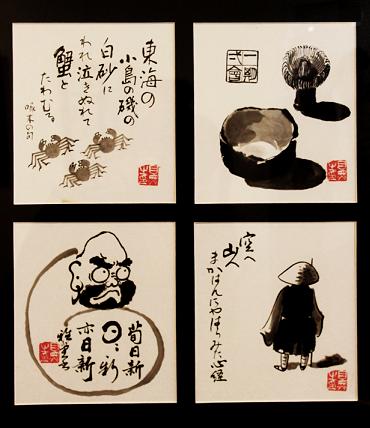 東海の
小島の磯の
白砂に
われ泣きぬれて
蟹と
たわむる
啄木の句
一期
弌會
苟日新
日々新
亦日新
空へ
山へ
まかはんにやはらみた心経